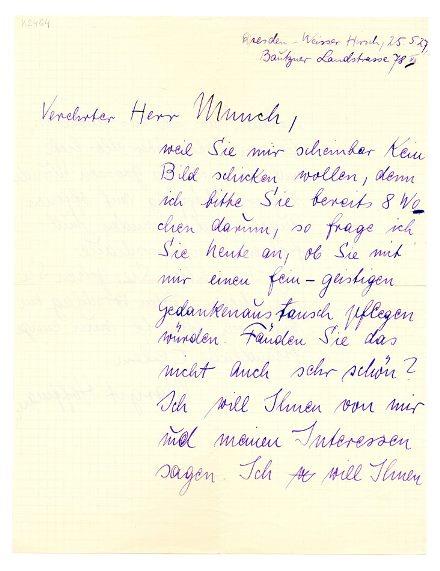 K2464
Dresden-Weisser Hirsch, 25.5.27
Bautzner Landstrasse 78 II
Verehrter Herr Munch,
weil Sie mir scheinbar Kein
Bild schicken wollen, denn
ich bitte Sie bereits 8 Wo
chen darum, so frage ich
Sie heute an, ob Sie mit
mir einen fein-geistigen
Gedankenaustausch pflegen
würden. Fänden Sie das
nicht auch sehr schön?
Ich will Ihnen von mir
und meinen Interessen
sagen. Ich will Ihnen